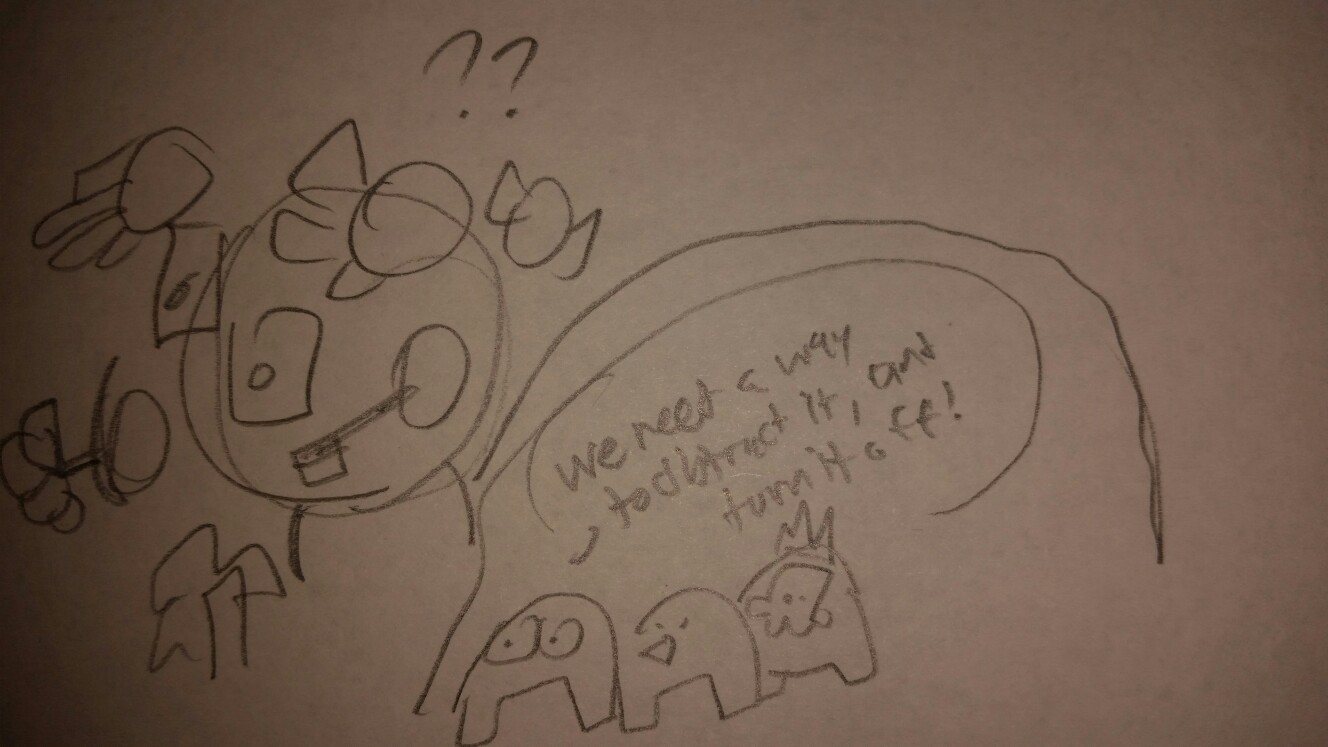 ??
we need a way
to distract it, and
turn it off!